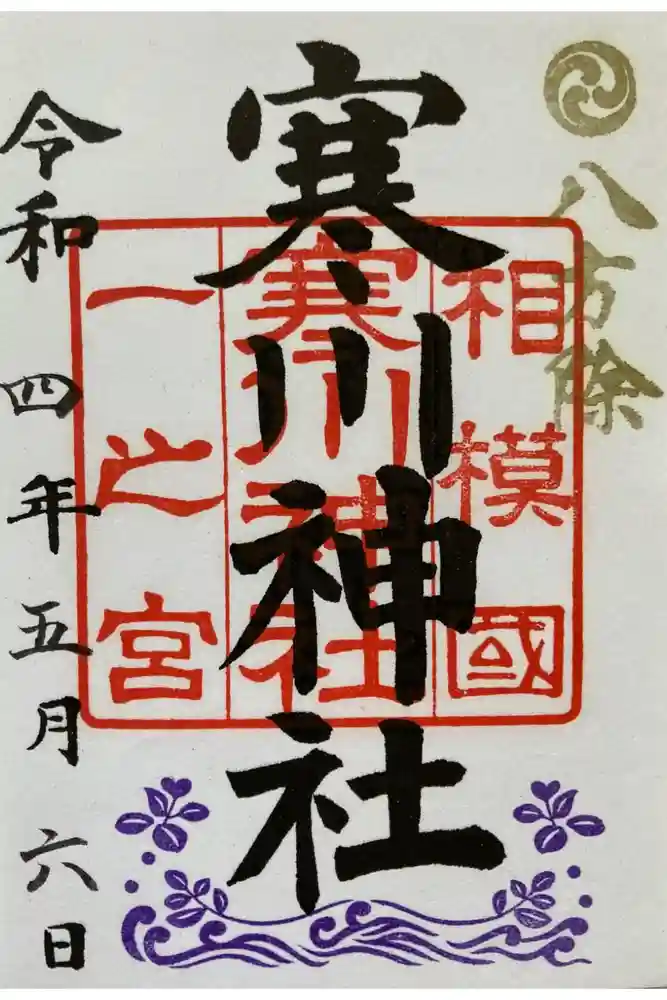 八方除
寒川神社
相模國
寒川神社
一之宮
令和四年五月六日